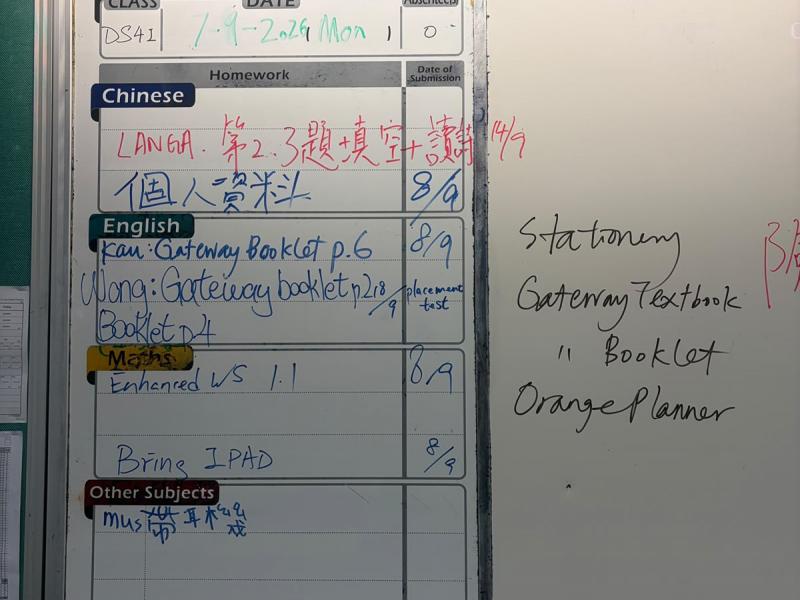 CLASS DATE Absentee(s)
DS4I 7.9-2026, Mon, 0
Homework Date of Submission
Chinese
LANGA. 第2.3題+填空+讀詩 14/9
個人資料 8/9
English
Kau: Gateway Booklet p.6 8/9
Wong: Gateway booklet p.2, 8/9 placement test
Booklet p4
Maths
Enhanced WS 1.1 8/9
Bring IPAD 8/9
Other Subjects
mus 帶耳機
Stationery
Gateway Textbook
" Booklet
Orange Planner